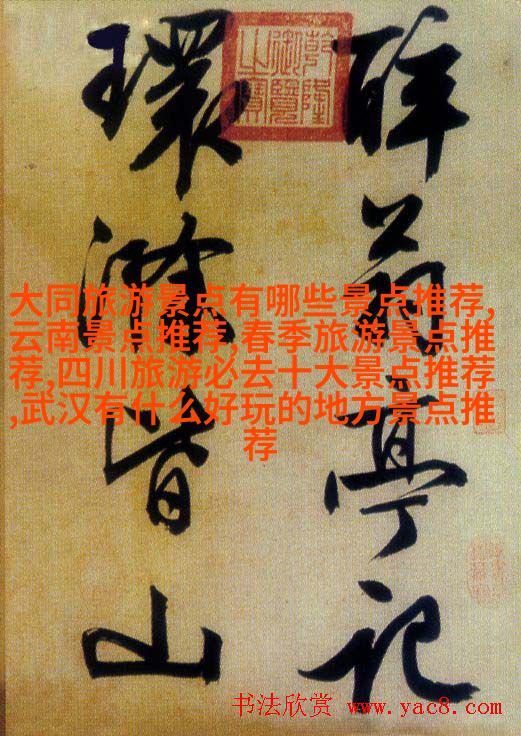 醉翁亭記
環滁皆山
乾隆
御覽
之寶
大同旅游景点有哪些景点推荐,
云南景点推荐,春季旅游景点推
荐,四川旅游必去十大景点推荐
,武汉有什么好玩的地方景点推
荐
书法欣赏 www.yac8.com